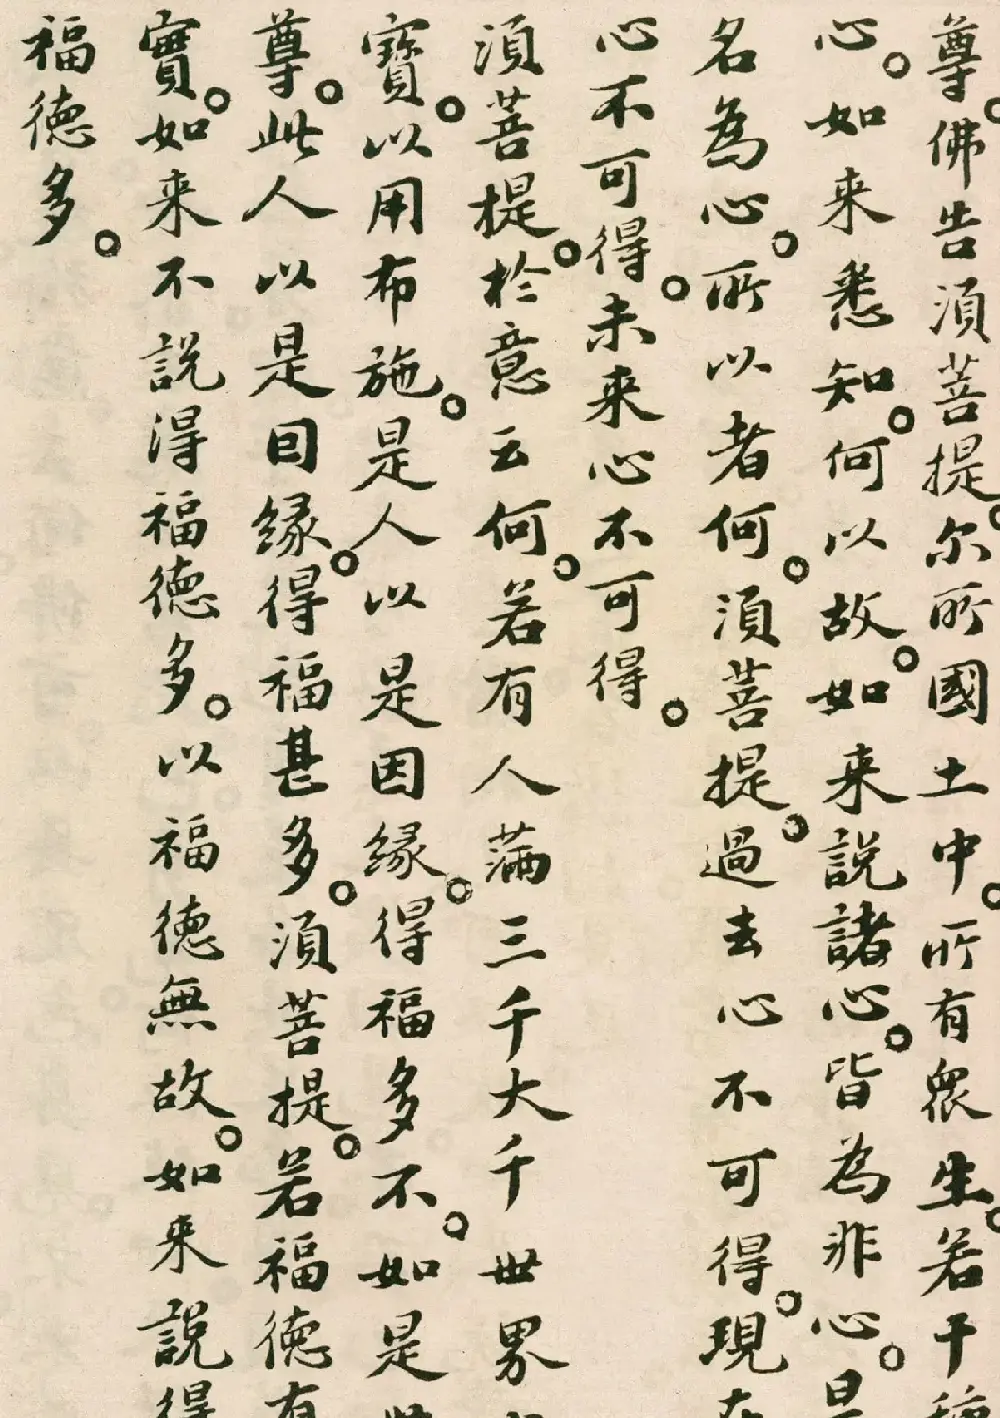 尊。佛告須菩提。尔所國土中。所有眾生。若干種
心。如来悉知。何以故。如来說諸心。皆為非心。是
名為心。所以者何。須菩提。過去心不可得。現在
心不可得。未来心不可得。
須菩提。於意云何。若有人滿三千大千世界
寶。以用布施。是人以是因緣。得福多不。如是
尊。此人以是因緣。得福甚多。須菩提。若福德有
實。如来不說得福德多。以福德無故。如来說得
福德多。